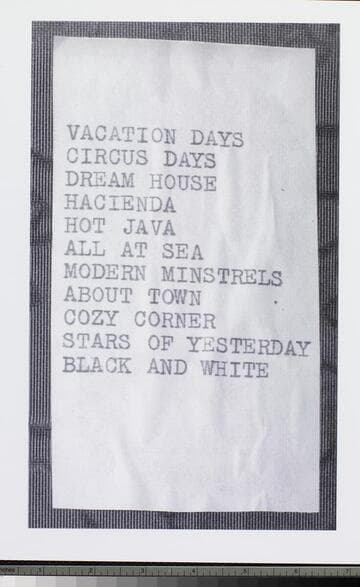 VACATION DAYS
CIRCUS DAYS
DREAM HOUSE
HACIENDA
HOT JAVA
ALL AT SEA
MODERN MINSTRELS
ABOUT TOWN
COZY CORNER
STARS OF YESTERDAY
BLACK AND WHITE
inches 1 2 3 4 5 6 7